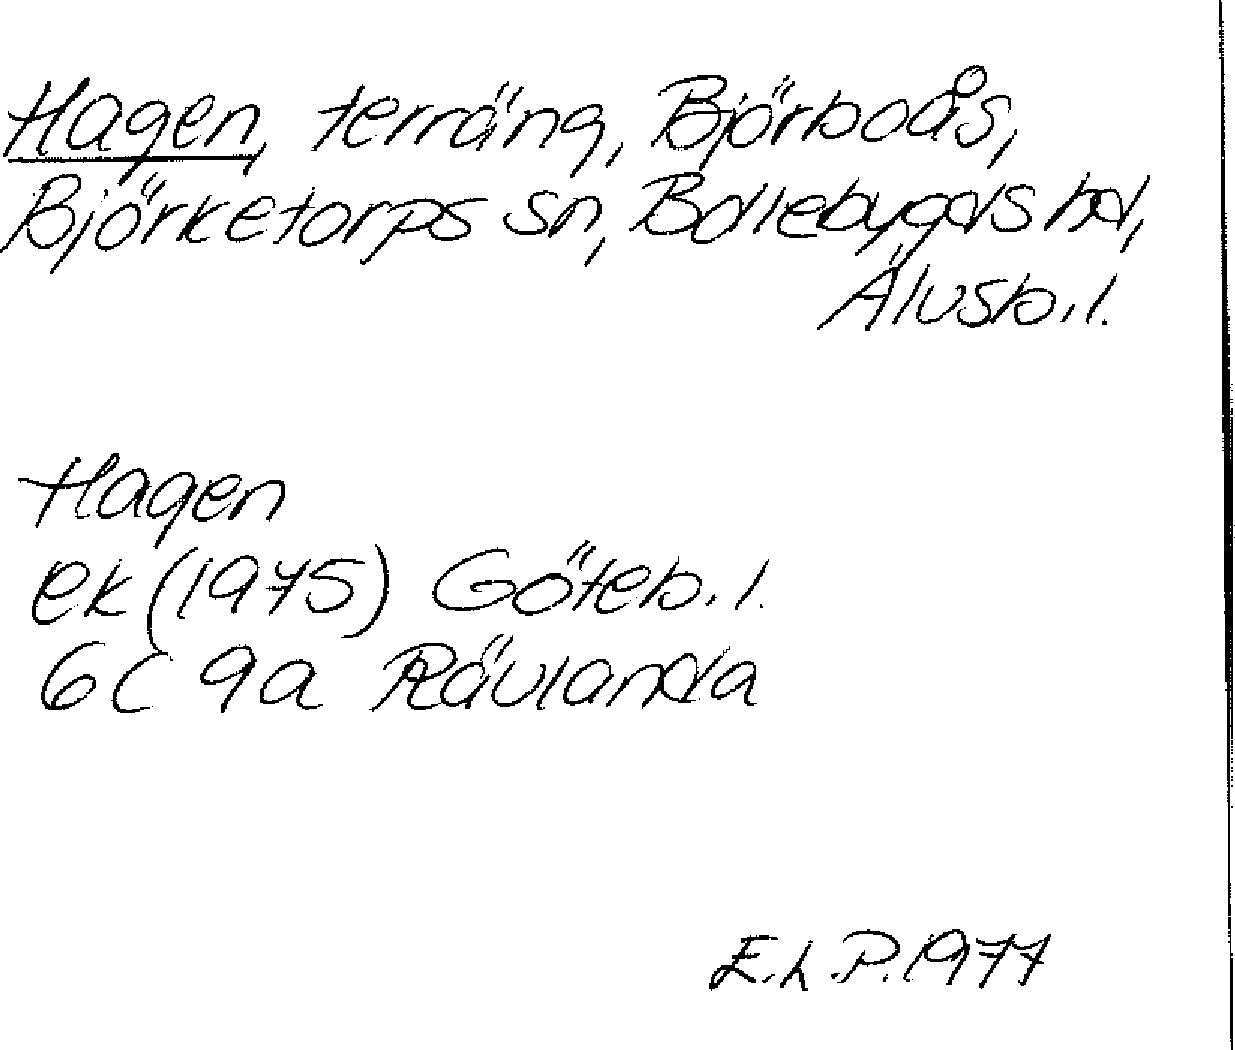 Hagen, terräng, Björboås,
Björketorps sn, Bollebygds hd,
Älvsb. l.
Hagen
ek (1975) Göteb. l.
6C 9a Rävlanda
E.L.P. 1977